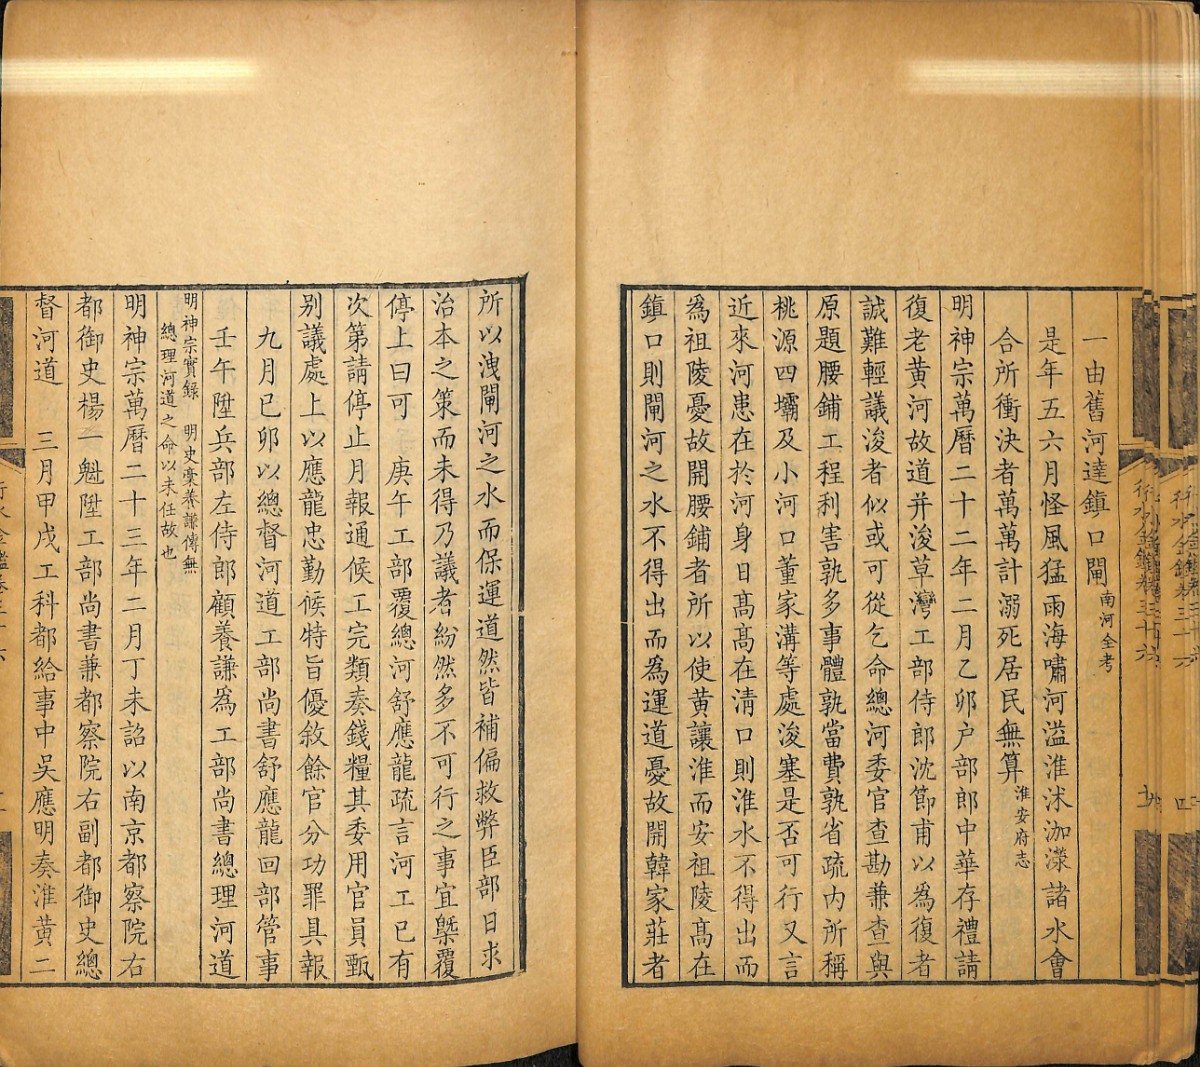 一由舊河達鎮口閘南河全考
是年五六月怪風猛雨海嘯河溢淮沭泇濴諸水會
合所衝決者萬萬計溺死居民無算淮安府志
明神宗萬曆二十二年二月乙卯户部郎中華存禮請
復老黄河故道并浚草灣工部侍郎沈節甫以為復者
誠難輕議浚者似或可從乞命總河委官查勘兼查與
原題腰鋪工程利害孰多事體孰當費孰省疏内所稱
桃源四壩及小河口董家溝等處浚塞是否可行又言
近來河患在於河身日髙髙在清口則淮水不得出而
為祖陵憂故開腰鋪者所以使黄讓淮而安祖陵髙在
鎮口則閘河之水不得出而為運道憂故開韓家莊者
所以洩閘河之水而保運道然皆補偏救弊臣部日求
治本之策而未得乃議者紛然多不可行之事宜槩覆
停上曰可　庚午工部覆總河舒應龍疏言河工已有
次第請停止月報通候工完類奏錢糧其委用官員甄
别議處上以應龍忠勤候特旨優敘餘官分功罪具報
九月已卯以總督河道工部尚書舒應龍回部管事
壬午陞兵部左侍郎顧養謙為工部尚書總理河道
明神宗實録　明史藁養謙傳無
總理河道之命以未任故也
明神宗萬曆二十三年二月丁未詔以南京都察院右
都御史楊一魁陞工部尚書兼都察院右副都御史總
督河道　三月甲戌工科都給事中吳應明奏淮黄二